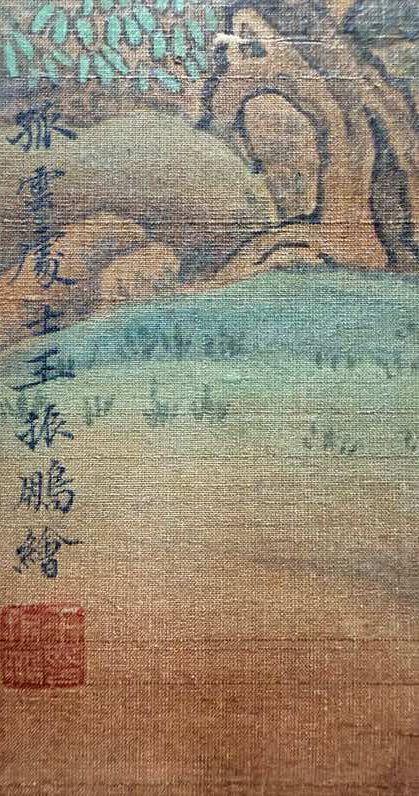 孤雲處士王振鵬繪